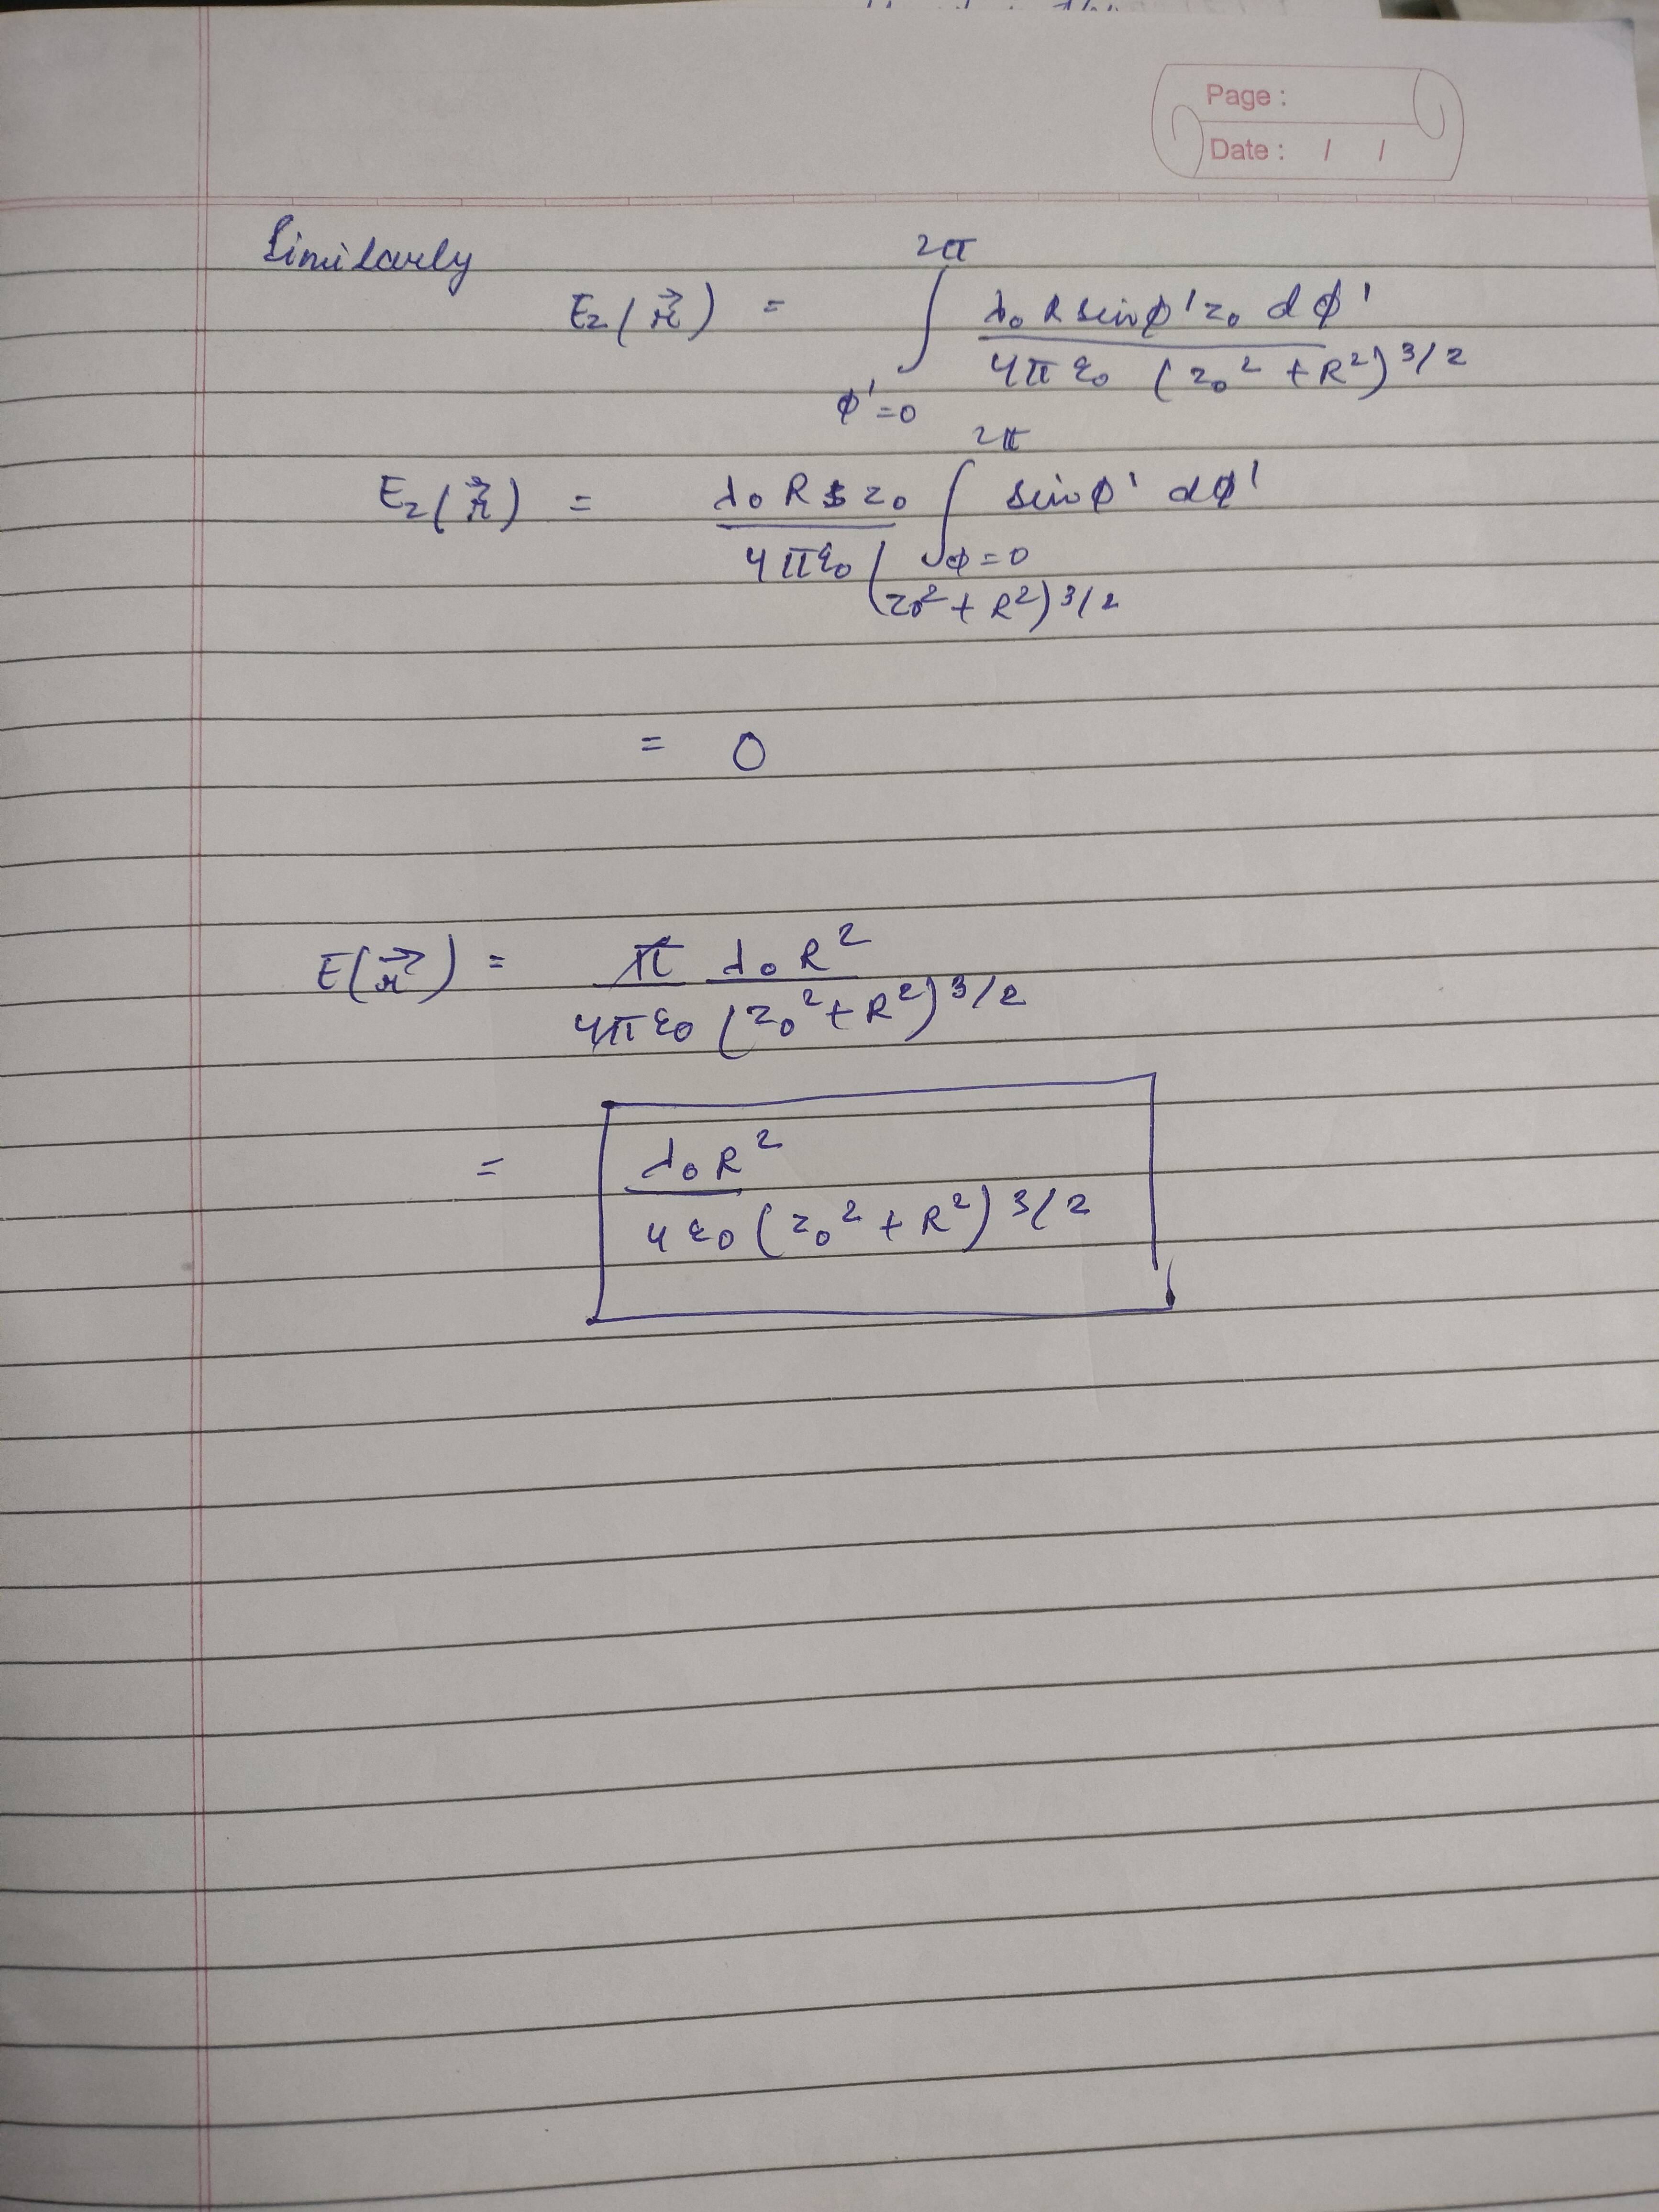 Page :
Date : / /
Similarly
E₂(r⃗) = ∫_{φ'=0}^{2π} λ₀ R sinφ' z₀ dφ' / 4π ε₀ (z₀² + R²)^{3/2}
E₂(r⃗) = λ₀ R z₀ / 4πε₀ (z₀² + R²)^{3/2} ∫_{φ=0}^{2π} sinφ' dφ'
= 0
E(r⃗) = π λ₀ R² / 4π ε₀ (z₀² + R²)^{3/2}
= λ₀ R² / 4 ε₀ (z₀² + R²)^{3/2}